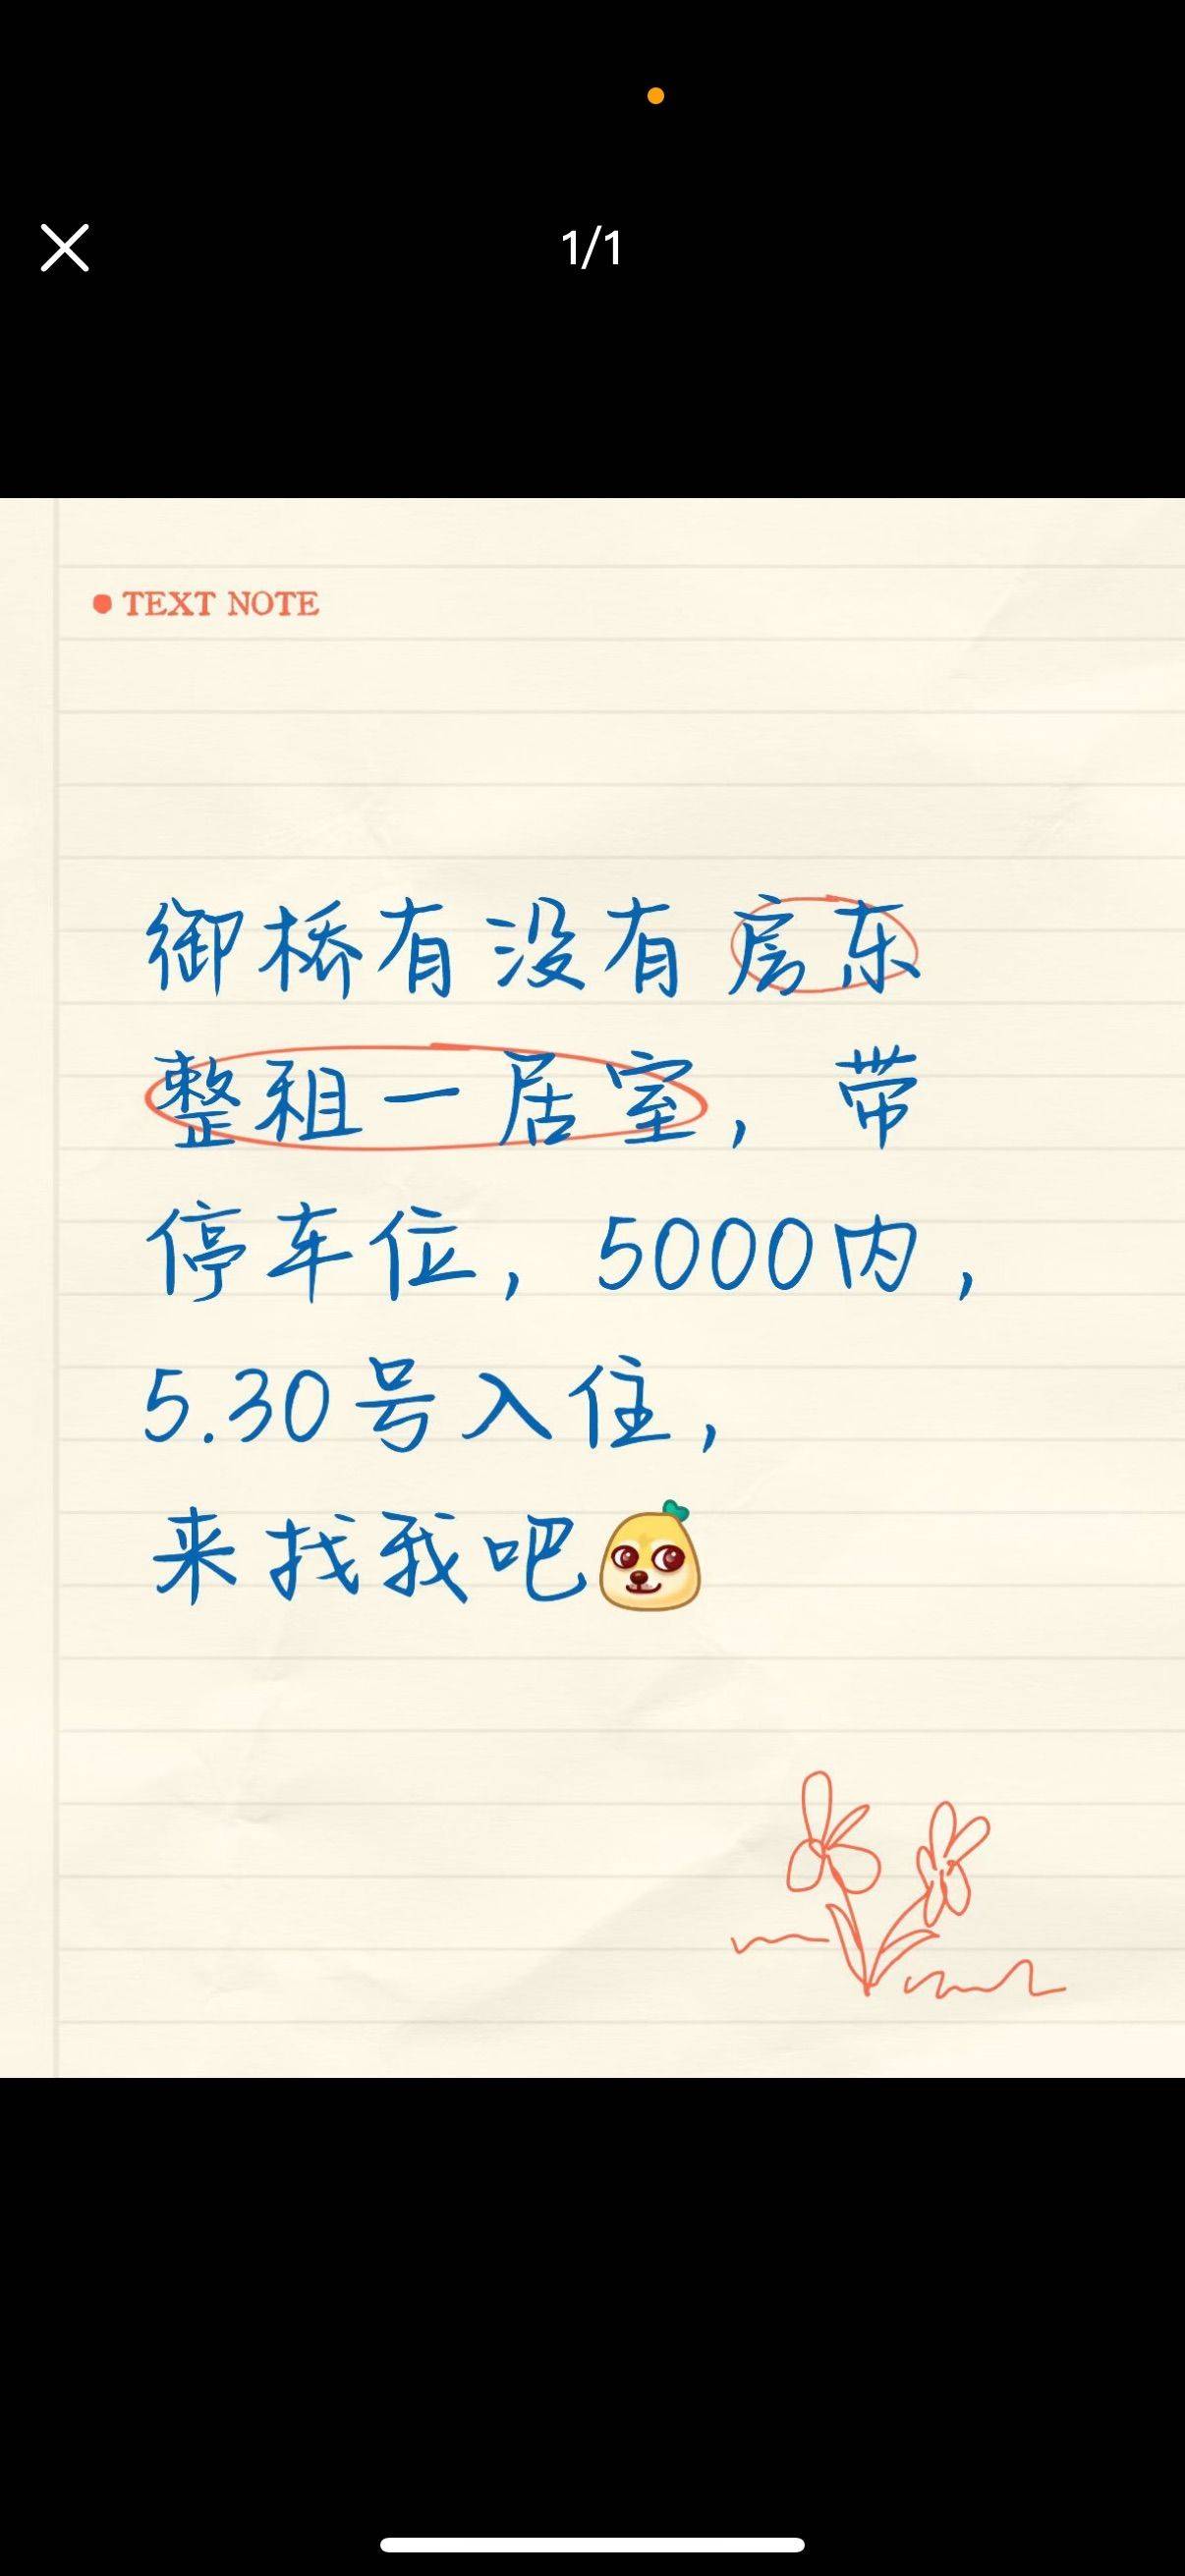 1/1
TEXT NOTE
御桥有没有房东
整租一居室，带
停车位，5000内，
5.30号入住，
来找我吧